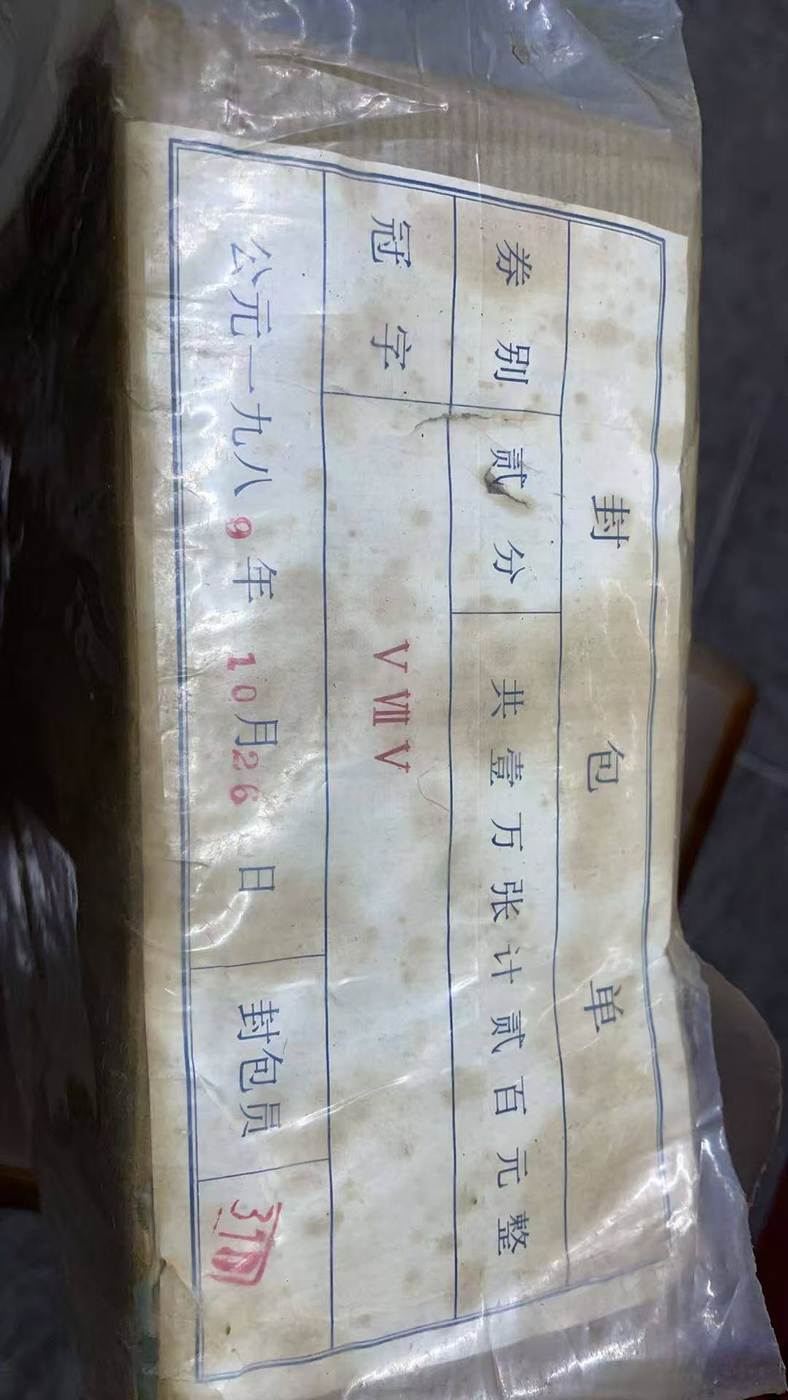 封包单
券别 贰分 共壹万张计贰百元整
冠字 V VII V
公元一九八9年10月26日 封包员